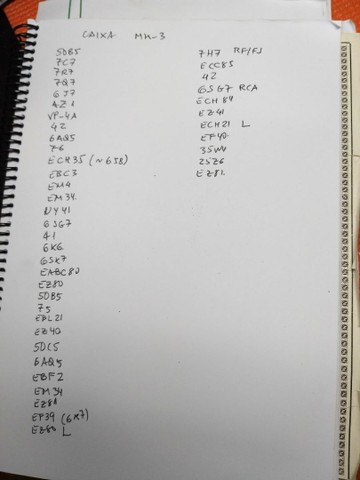 CAIXA MK-3
50B5
7C7
7R7
7Q7
6J7
AZ1
VP-4A
42
6AQ5
76
ECH35 (~6J8)
EBC3
EM4
EM34
UY41
6SG7
41
6K6
6SK7
EABC80
EZ80
50B5
75
EBL21
EZ40
50C5
6AQ5
EBF2
EM34
EZ81
EF39 (6K7)
EZ80 L
7H7 RF/FI
ECC85
42
6SG7 RCA
ECH84
EZ41
ECH21 L
EF40
35W4
25Z6
EZ81